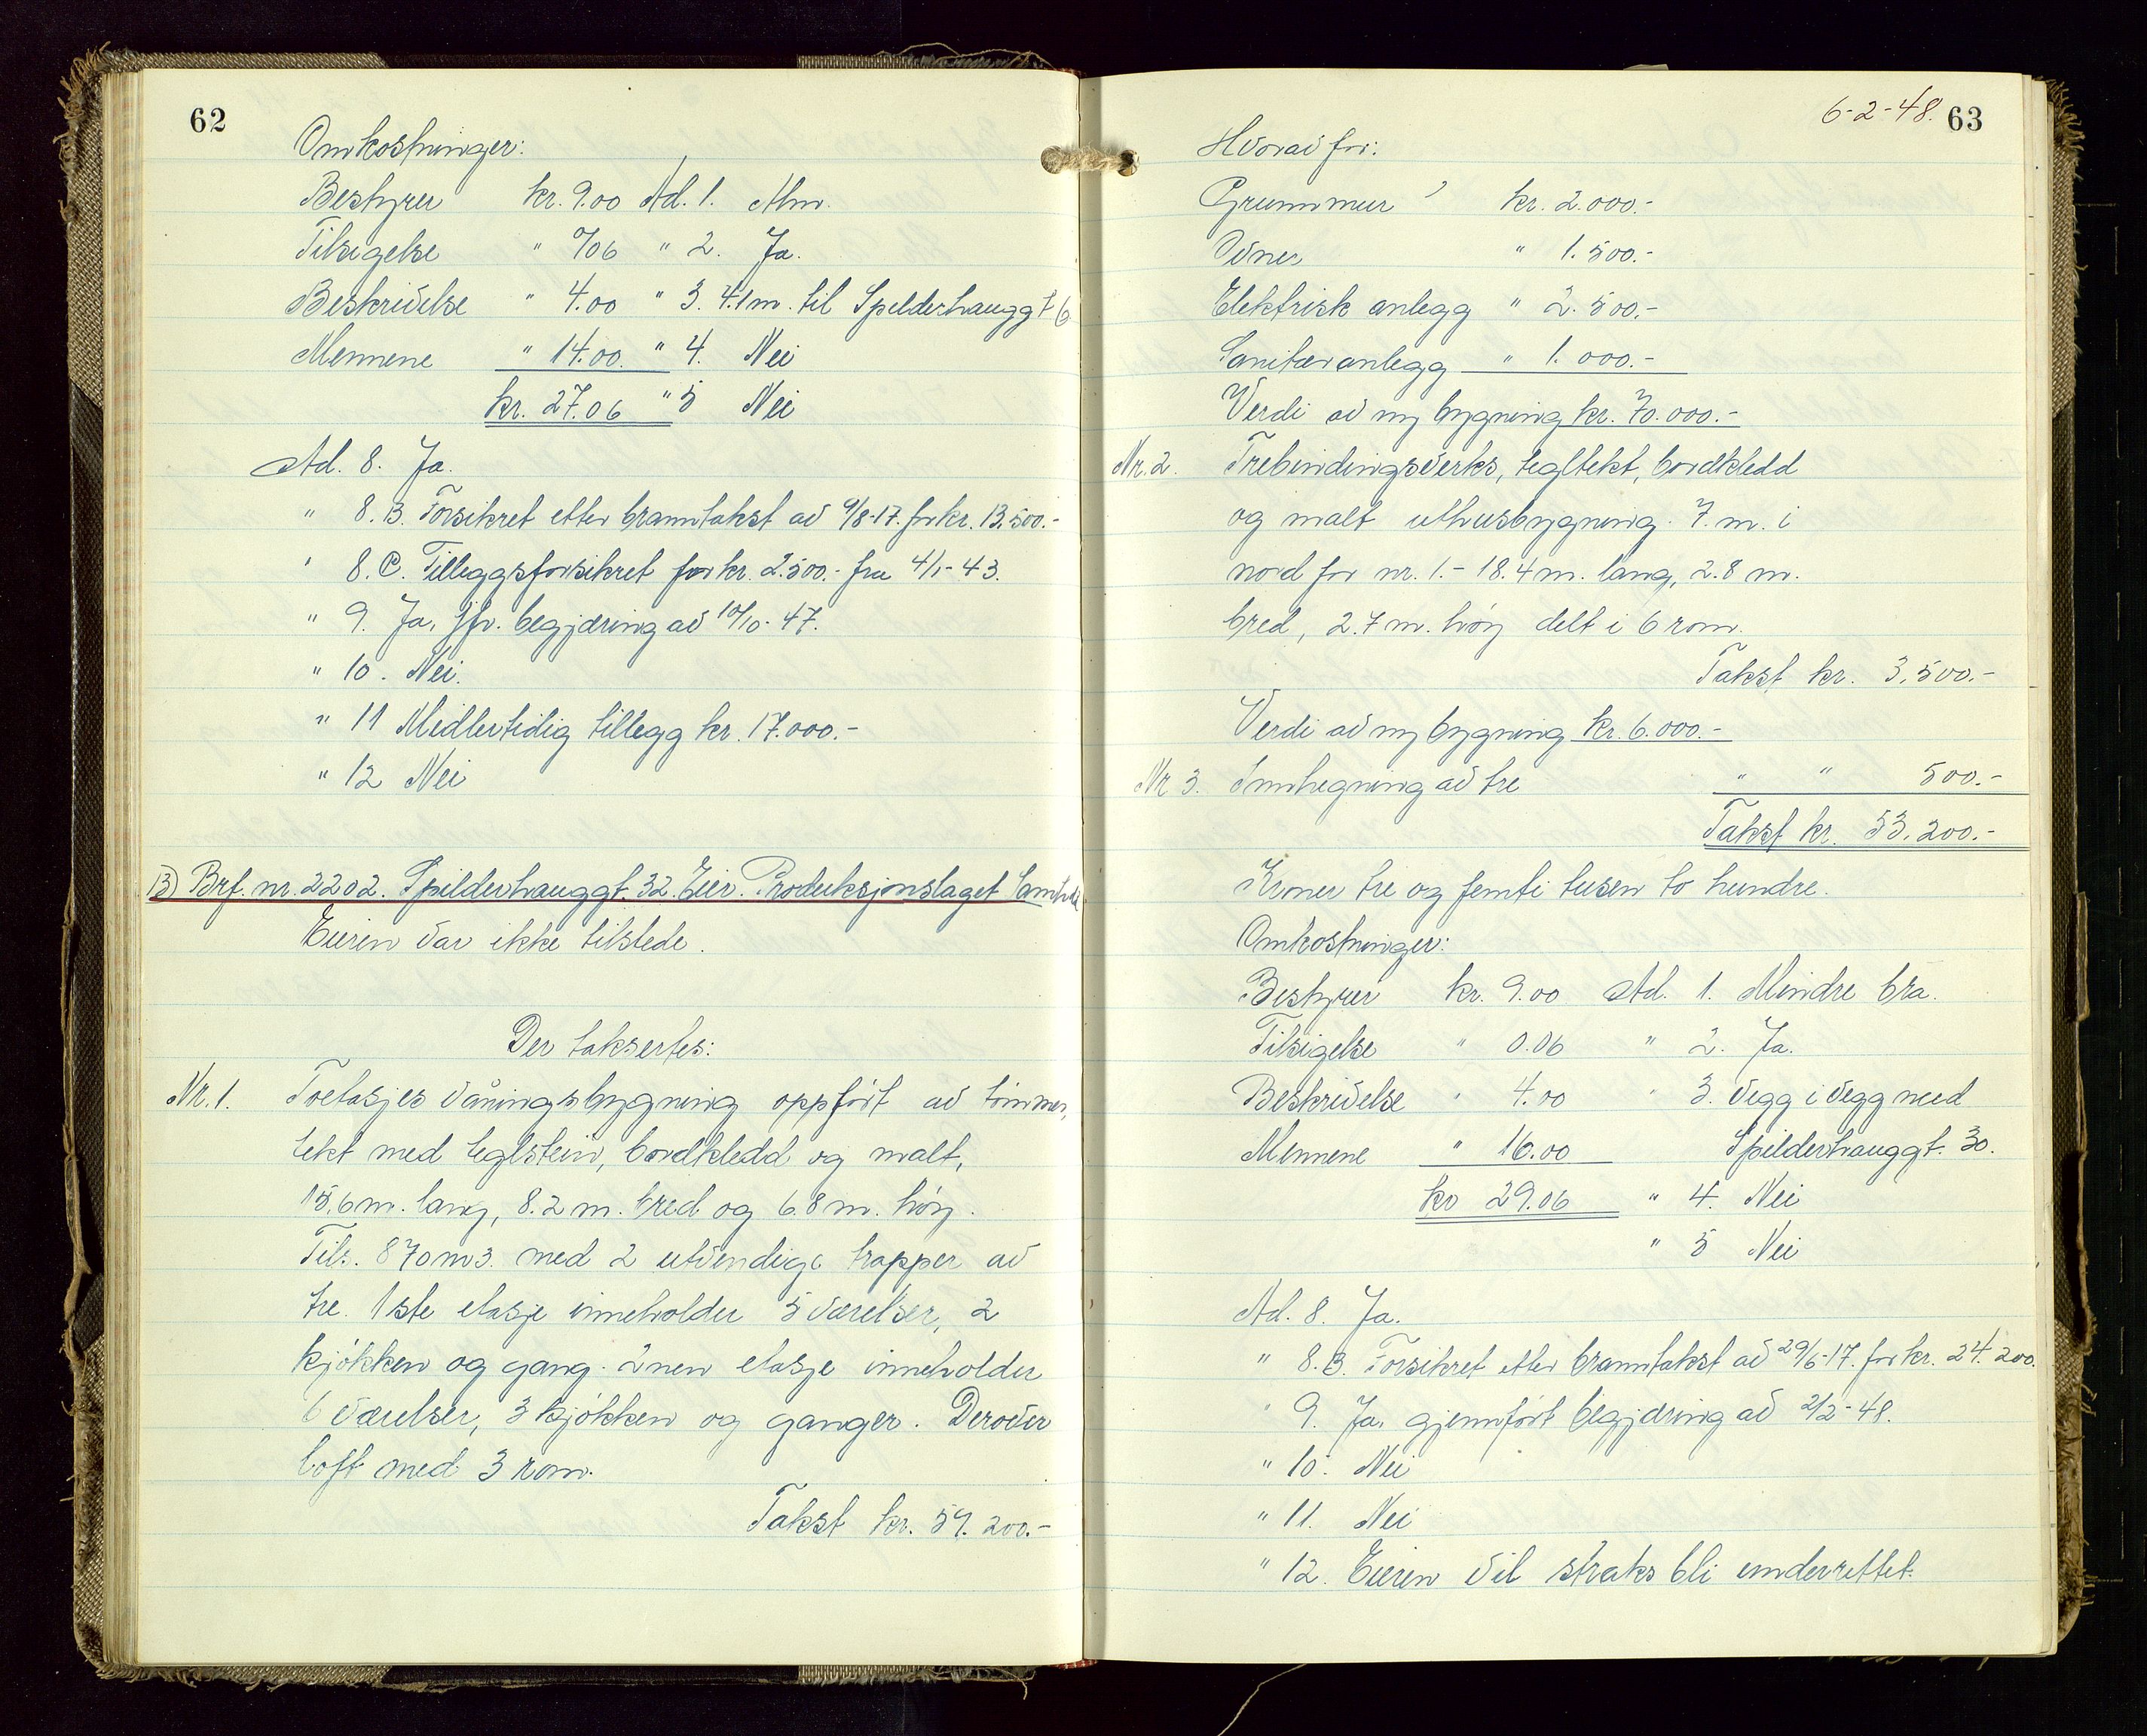 62
Omkostninger:
Bestyrer kr. 9.00 Ad. 1. Alm.
Tilsigelse " 0/06 " 2. Ja.
Beskrivelse " 4.00 " 3. 4.1 m. til Spilderhauggt 6
Mennene " 14.00. " 4. Nei
kr. 27.06 " 5 Nei
Ad. 8. Ja.
" 8. B. Forsikret etter branntakst av 9/8-17. for kr. 13.500.-
" 8. C. Tilleggsforsikret for kr. 2.500.- fra 4/1-43.
" 9. Ja, jfr. begjæring av 10/10-47.
" 10. Nei.
" 11 Midlertidig tillegg kr. 17.000.-
" 12 Nei
13) Brf. nr. 2202. Spilderhauggt. 32. Eier. Produksjonslaget
Eieren var ikke tilstede.
Der taksertes:
Nr. 1. Toetasjes våningsbygning oppført av tømmer,
tekt med teglstein, bordkledd og malt,
15,6 m. lang, 8.2 m. bred og 6.8 m. høy.
Tils. 870 m3. med 2 utvendige trapper av
tre. 1ste etasje inneholder 5 værelser, 2
kjøkken og gang. 2nen etasje inneholder
6 værelser, 3 kjøkken og ganger. Derover
loft med 3 rom.
Takst kr. 200.-
6-2-48. 63
Hvorav for:
Grunnmur kr. 2.000.-
Ovner " 1.500.-
Elektrisk anlegg " 2.500.-
Sanitæranlegg " 1.000.-
Verdi av ny bygning kr. 70.000.-
Nr. 2. Trebindingsverks, tegltekt, bordkledd
og malt uthusbygning. 7. m. i
nord for nr. 1. - 18.4 m. lang, 2.8 m.
bred, 2.7 m. høy delt i 6 rom.
Takst kr. 3.500.-
Verdi av ny bygning kr. 6.000.-
Nr 3. Innhegning av tre " " 500.-
Takst kr. 53.200.-
Kroner tre og femti tusen to hundre.
Omkostninger:
Bestyrer kr. 9.00 Ad. 1. Mindre bra.
Tilsigelse " 0.06 " 2. Ja.
Beskrivelse " 4.00 " 3. Vegg i vegg med
Mennene " 16.00 Spilderhauggt. 30.
kr 29.06 " 4. Nei
" 5 Nei
Ad. 8. Ja.
" 8. B. Forsikret etter branntakst av 29/6-17. for kr. 24.200.
" 9. Ja, gjennført begjæring av 2/2-48.
" 10. Nei
" 11. Nei
" 12. Eieren vil straks bli underrettet.